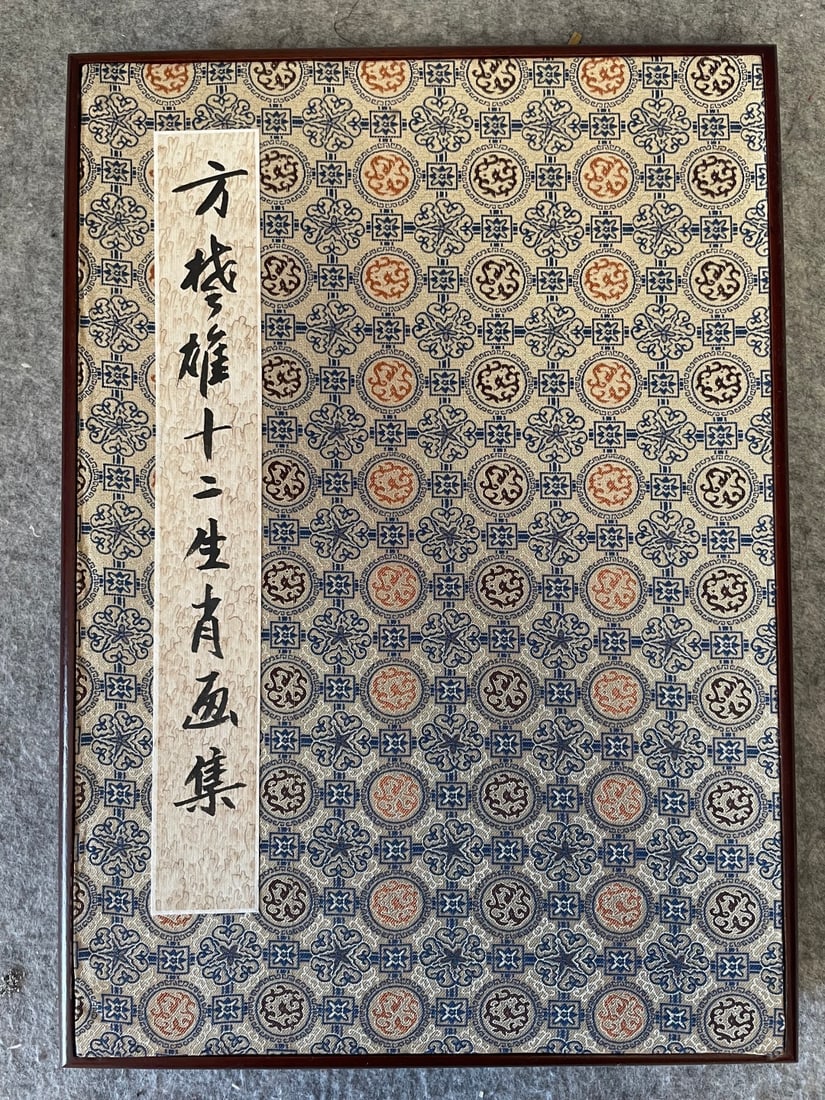 方楚雄十二生肖画集